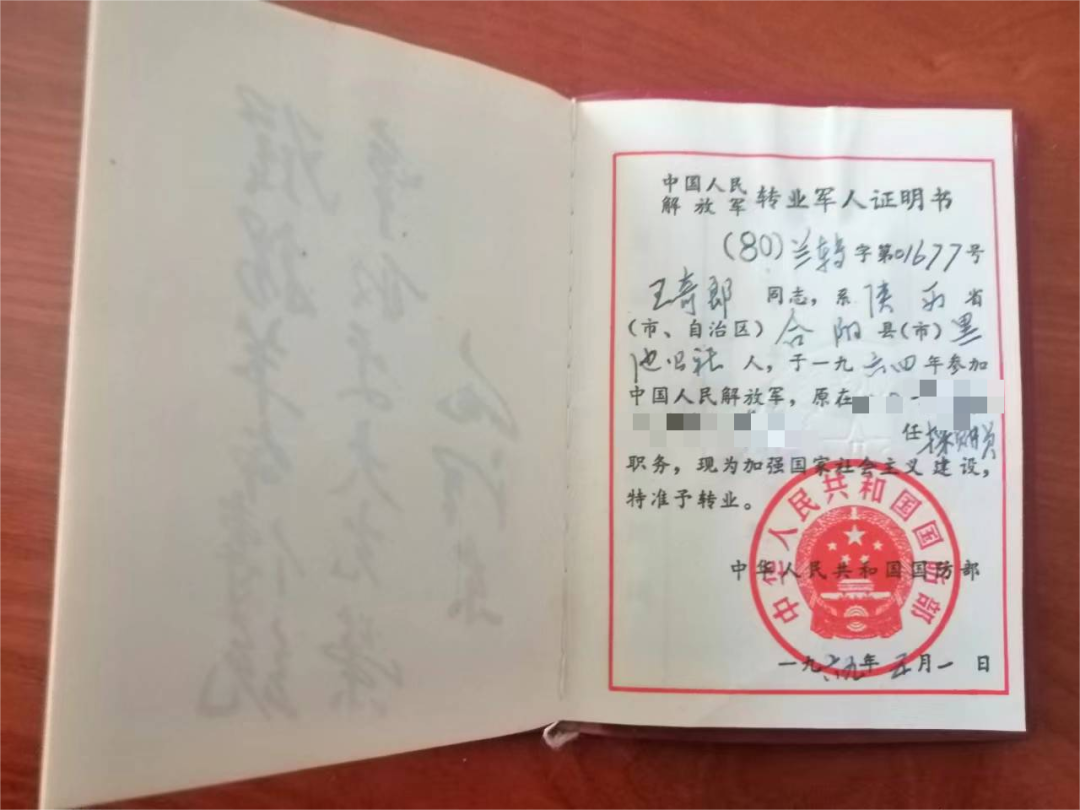 中国人民
解放军 转业军人证明书
(80)兰转字第01677号
王奇郎 同志，系陕西省
(市、自治区)合阳县(市)黑
池公社人，于一九六四年参加
中国人民解放军，原在
任探照员
职务，现为加强国家社会主义建设，
特准予转业。
中华人民共和国国防部
中华人民共和国国防部
一九六九年五月一日